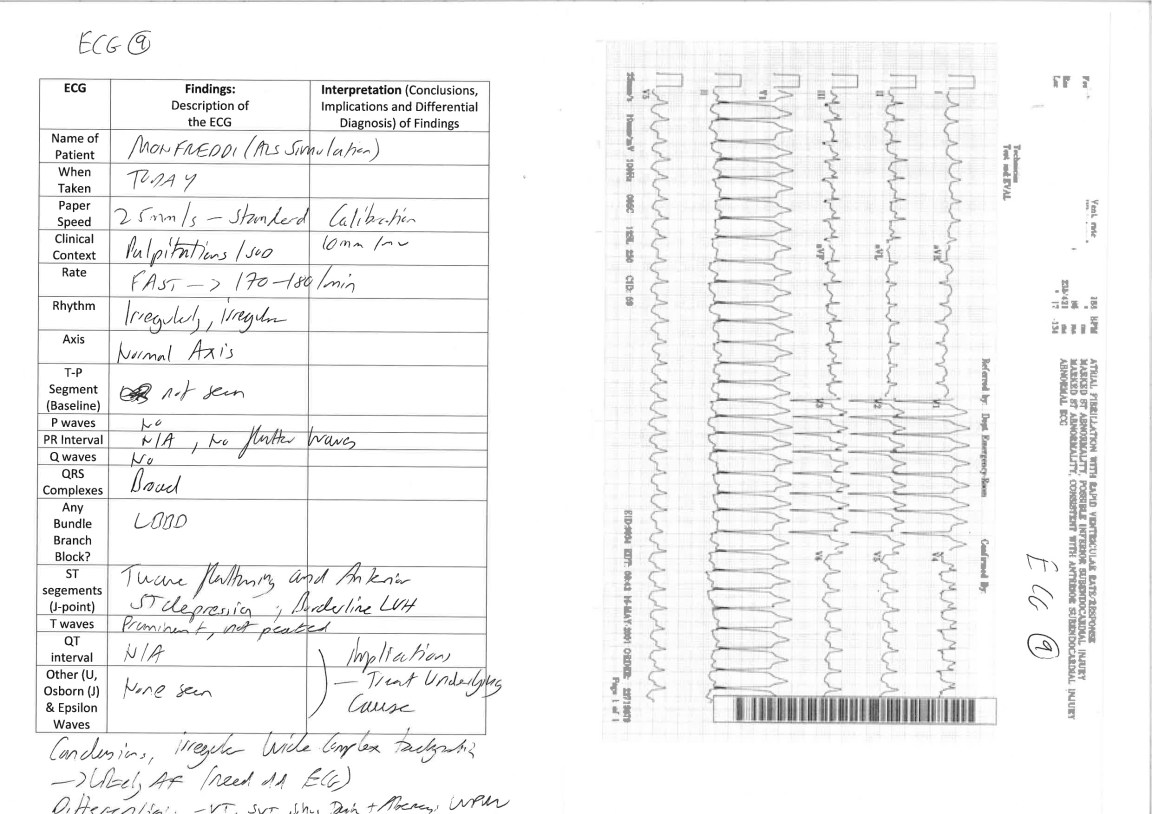 ECG 9
ECG
Findings:
Description of
the ECG
Interpretation (Conclusions,
Implications and Differential
Diagnosis) of Findings
Name of
Patient
MONFREDDI (ALS Simulation)
When
Taken
TODAY
Paper
Speed
25mm/s - Standard Calibration
Clinical
Context
Palpitations / SOB
10mm/mv
Rate
FAST -> 170-180/min
Rhythm
Irregularly, Irregular
Axis
Normal Axis
T-P
Segment
(Baseline)
not seen
P waves
No
PR Interval
N/A, No flutter waves
Q waves
No
QRS
Complexes
Broad
Any
Bundle
Branch
Block?
LBBB
ST
segements
(J-point)
T wave flattening and Anterior
ST depression, Borderline LVH
T waves
Prominent, not peaked
QT
interval
N/A
Implications
- Treat Underlying
Cause
Other (U,
Osborn (J)
& Epsilon
Waves
None seen
Conclusions, irregular Wide Complex tachycardia
-> Likely AF (need old ECG)
- VT, SVT, WPW
Technician
Test ind:EVAL
Vent. rate
188 BPM
ATRIAL FIBRILLATION WITH RAPID VENTRICULAR RATE/RESPONSE
MARKED ST ABNORMALITY, POSSIBLE INFERIOR SUBENDOCARDIAL INJURY
MARKED ST ABNORMALITY, CONSISTENT WITH ANTERIOR SUBENDOCARDIAL INJURY
ABNORMAL ECG
Referred by: Dept Emergency Room
Confirmed By:
I
aVR
V1
V4
II
aVL
V2
V5
III
aVF
V3
V6
V1
II
V5
25mm/s 10mm/mV 100Hz
CID: 60
Page 1 of 1
ECG 9